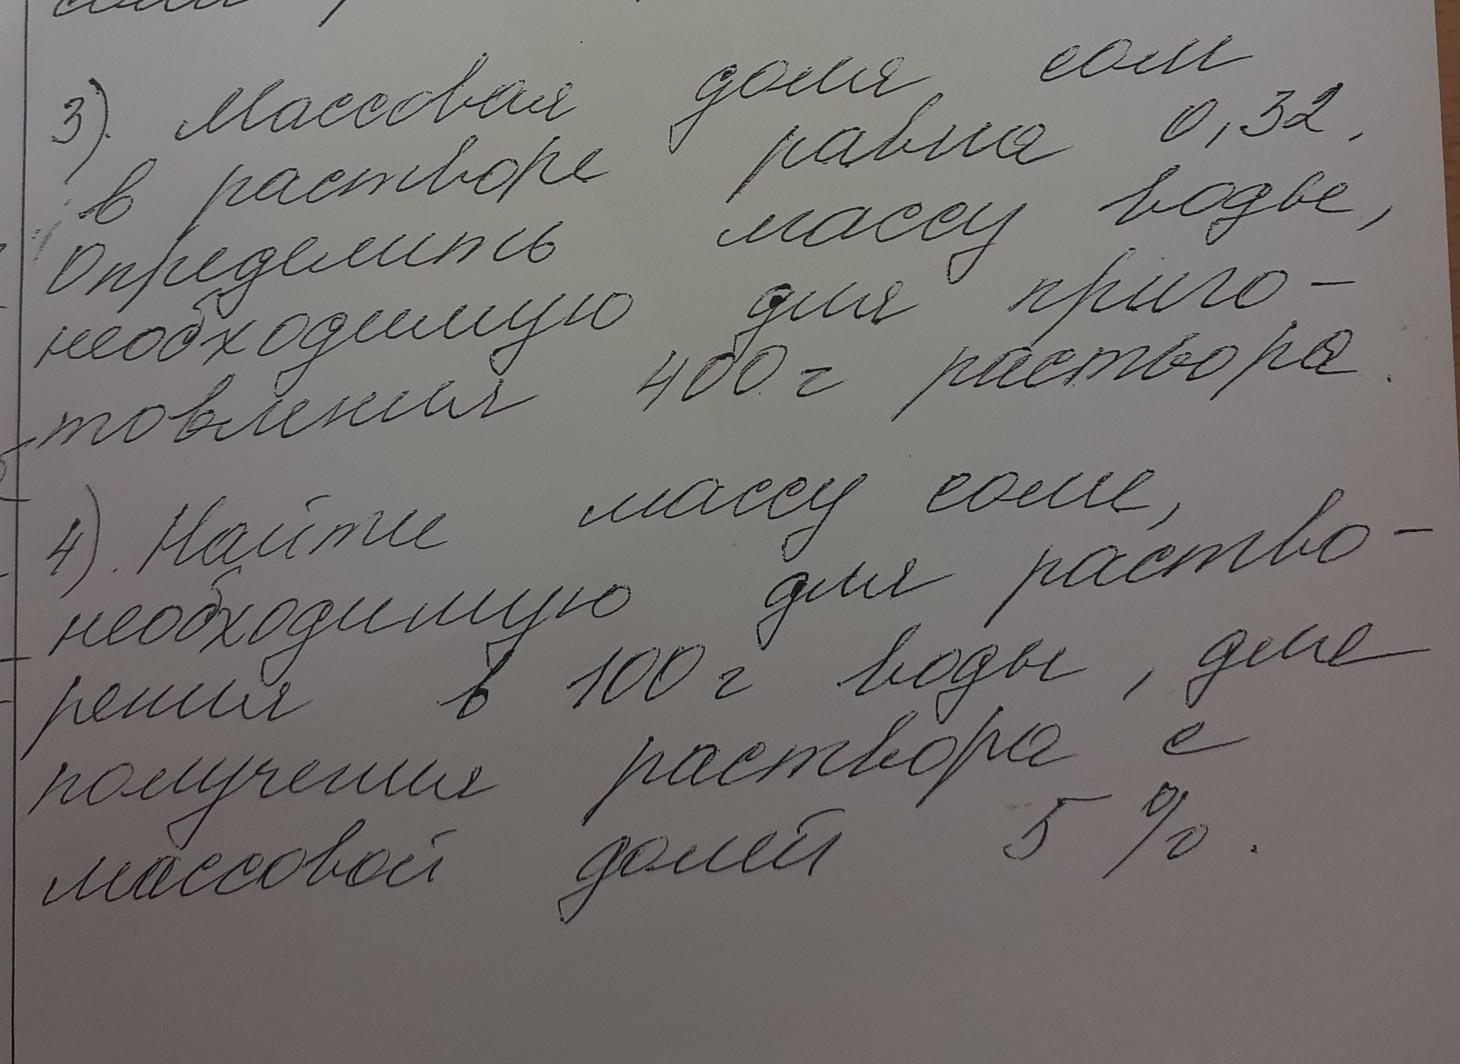 3). Массовая доля соли
в растворе равна 0,32.
Определить массу воды,
необходимую для приго-
товления 400 г раствора.
4). Найти массу соли,
необходимую для раство-
рения в 100 г воды, для
получения раствора с
массовой долей 5 %.